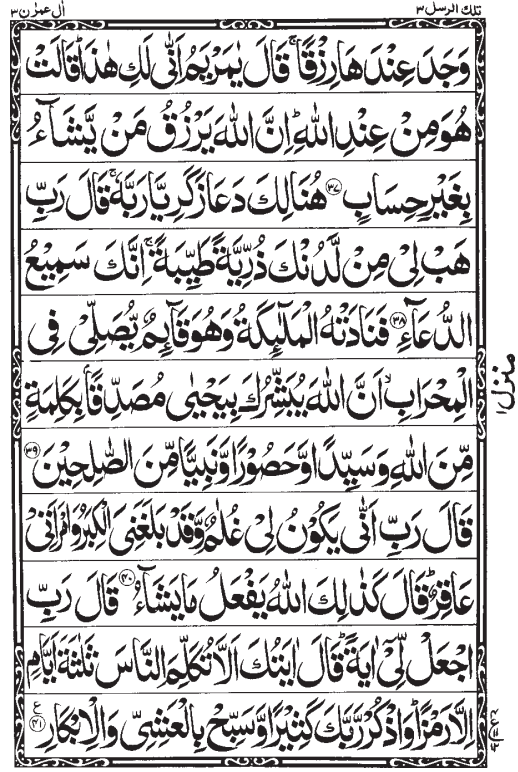 تلك الرسل ٣
اٰل عمرٰن ٣
وَجَدَ عِنْدَهَا رِزْقًا ۚ قَالَ يٰمَرْيَمُ اَنّٰى لَكِ هٰذَا ؕ قَالَتْ
هُوَ مِنْ عِنْدِ اللّٰهِ ؕ اِنَّ اللّٰهَ يَرْزُقُ مَنْ يَّشَآءُ
بِغَيْرِ حِسَابٍ ﴿٣٧﴾ هُنَالِكَ دَعَا زَكَرِيَّا رَبَّهٗ ۚ قَالَ رَبِّ
هَبْ لِيْ مِنْ لَّدُنْكَ ذُرِّيَّةً طَيِّبَةً ۚ اِنَّكَ سَمِيْعُ
الدُّعَآءِ ﴿٣٨﴾ فَنَادَتْهُ الْمَلٰٓئِكَةُ وَهُوَ قَآئِمٌ يُّصَلِّيْ فِي
الْمِحْرَابِ ۙ اَنَّ اللّٰهَ يُبَشِّرُكَ بِيَحْيٰى مُصَدِّقًۢا بِكَلِمَةٍ
مِّنَ اللّٰهِ وَسَيِّدًا وَّحَصُوْرًا وَّنَبِيًّا مِّنَ الصّٰلِحِيْنَ ﴿٣٩﴾
قَالَ رَبِّ اَنّٰى يَكُوْنُ لِيْ غُلٰمٌ وَّقَدْ بَلَغَنِيَ الْكِبَرُ وَامْرَاَتِيْ
عَاقِرٌ ؕ قَالَ كَذٰلِكَ اللّٰهُ يَفْعَلُ مَا يَشَآءُ ﴿٤٠﴾ قَالَ رَبِّ
اجْعَلْ لِّيْٓ اٰيَةً ؕ قَالَ اٰيَتُكَ اَلَّا تُكَلِّمَ النَّاسَ ثَلٰثَةَ اَيَّامٍ
اِلَّا رَمْزًا ؕ وَاذْكُرْ رَّبَّكَ كَثِيْرًا وَّسَبِّحْ بِالْعَشِيِّ وَالْاِبْكَارِ ﴿٤١﴾ ع
منزل ١